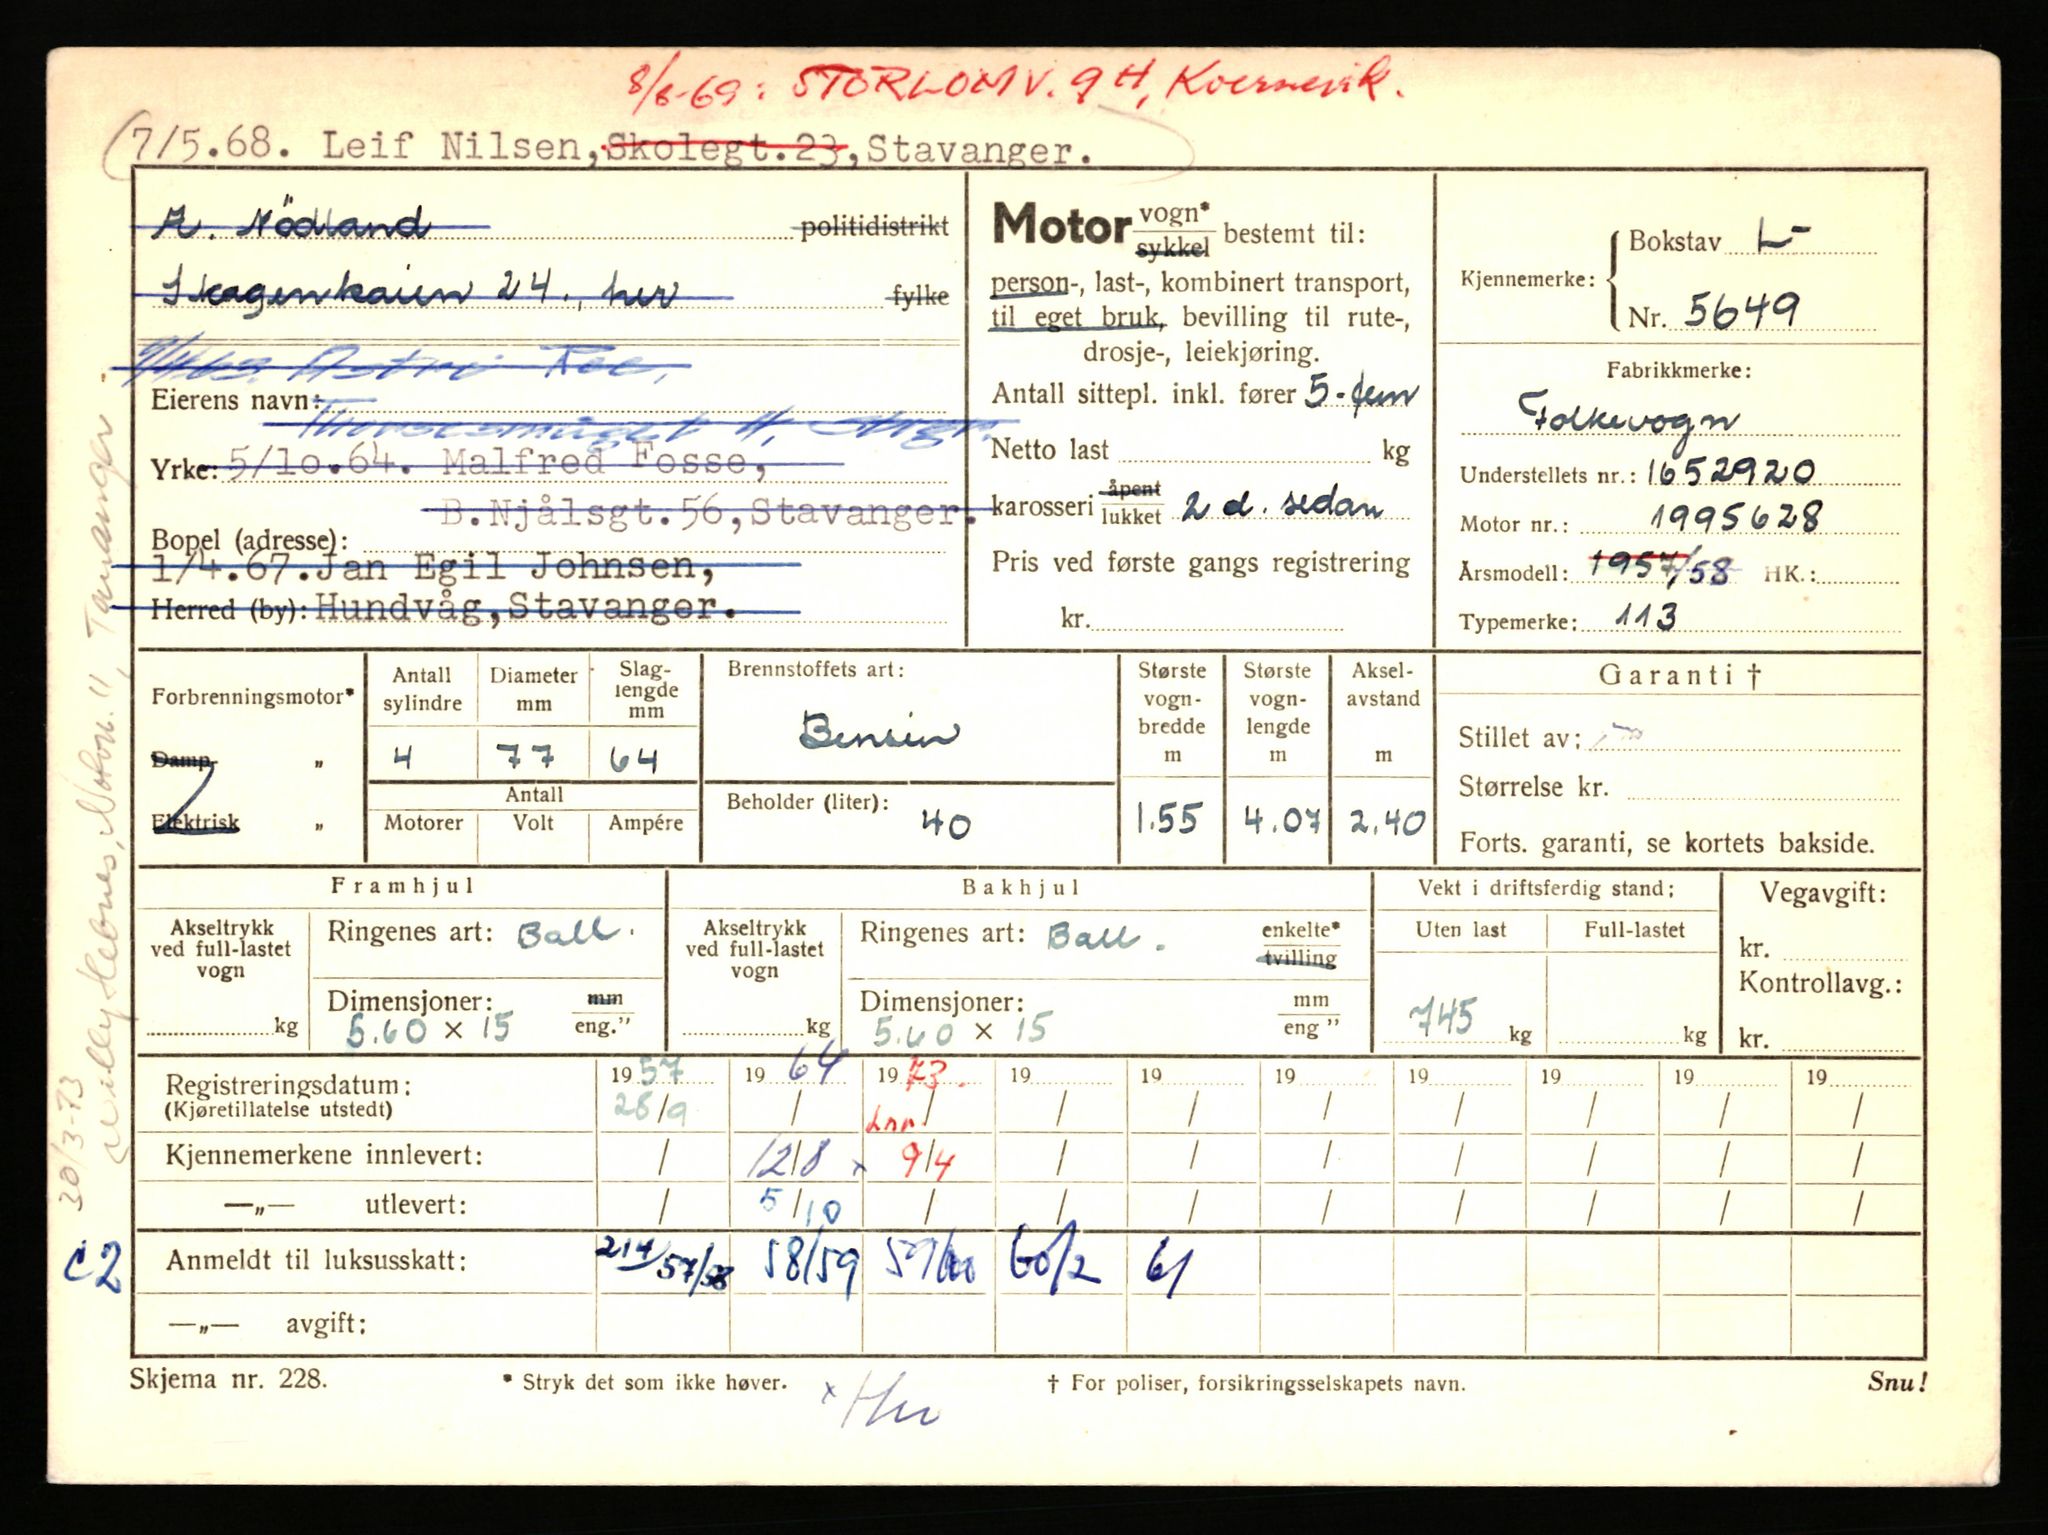 8/8-69: STORLOMV. 9 H, Kvernevik.
(7/5.68. Leif Nilsen, Skolegt.23, Stavanger.
A. Nödland politidistrikt
Skagenkaien 24., her fylke
Astri Roe,
Eierens navn:
Yrke: 5/10.64. Malfred Fosse,
B.Njålsgt.56, Stavanger.
Bopel (adresse):
1/4.67. Jan Egil Johnsen,
Herred (by): Hundvåg, Stavanger.
Motor vogn* sykkel bestemt til:
person-, last-, kombinert transport,
til eget bruk, bevilling til rute-,
drosje-, leiekjøring.
Antall sittepl. inkl. fører 5-fem
Netto last kg
karosseri åpent lukket 2 d. sedan
Pris ved første gangs registrering
kr.
Kjennemerke: Bokstav L-
Nr. 5649
Fabrikkmerke:
Folkevogn
Understellets nr.: 1652920
Motor nr.: 1995628
Årsmodell: 1957/58 HK.:
Typemerke: 113
Forbrenningsmotor*
Damp „
Elektrisk „
Antall sylindre
4
Diameter mm
77
Slag-lengde mm
64
Antall
Motorer Volt Ampére
Brennstoffets art:
Bensin
Beholder (liter): 40
Største vogn-bredde m
1.55
Største vogn-lengde m
4.07
Aksel-avstand m
2.40
Garanti †
Stillet av:
Størrelse kr.
Forts. garanti, se kortets bakside.
Framhjul
Akseltrykk ved full-lastet vogn
kg
Ringenes art: Ball.
Dimensjoner: mm eng."
5.60 x 15
Bakhjul
Akseltrykk ved full-lastet vogn
kg
Ringenes art: Ball. enkelte* tvilling
Dimensjoner: mm eng "
5.60 x 15
Vekt i driftsferdig stand:
Uten last Full-lastet
745 kg kg
Vegavgift:
kr.
Kontrollavg.:
kr.
Registreringsdatum: 19 57 19 64 19 73. 19 19 19 19 19 19 19
(Kjøretillatelse utstedt) 28/9 / / / / / / / / /
Kjennemerkene innlevert: / 12/8 x 9/4 / / / / / / /
—„— utlevert: / 5/10 / / / / / / / /
Anmeldt til luksusskatt: 214/57/58 58/59 59/60 60/2 61
—„— avgift:
Skjema nr. 228. * Stryk det som ikke høver. † For poliser, forsikringsselskapets navn. Snu!
x
30/3-73
Tananger
c2